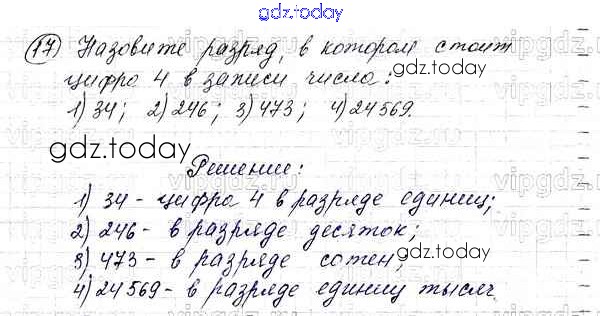 gdz.today
17) Назовите разряд, в котором стоит
цифра 4 в записи числа:
gdz.today
1) 34; 2) 246; 3) 473; 4) 24569.
gdz.today
Решение:
1) 34 - цифра 4 в разряде единиц;
2) 246 - в разряде десяток;
gdz.today
3) 473 - в разряде сотен;
4) 24569 - в разряде единиц тысяч